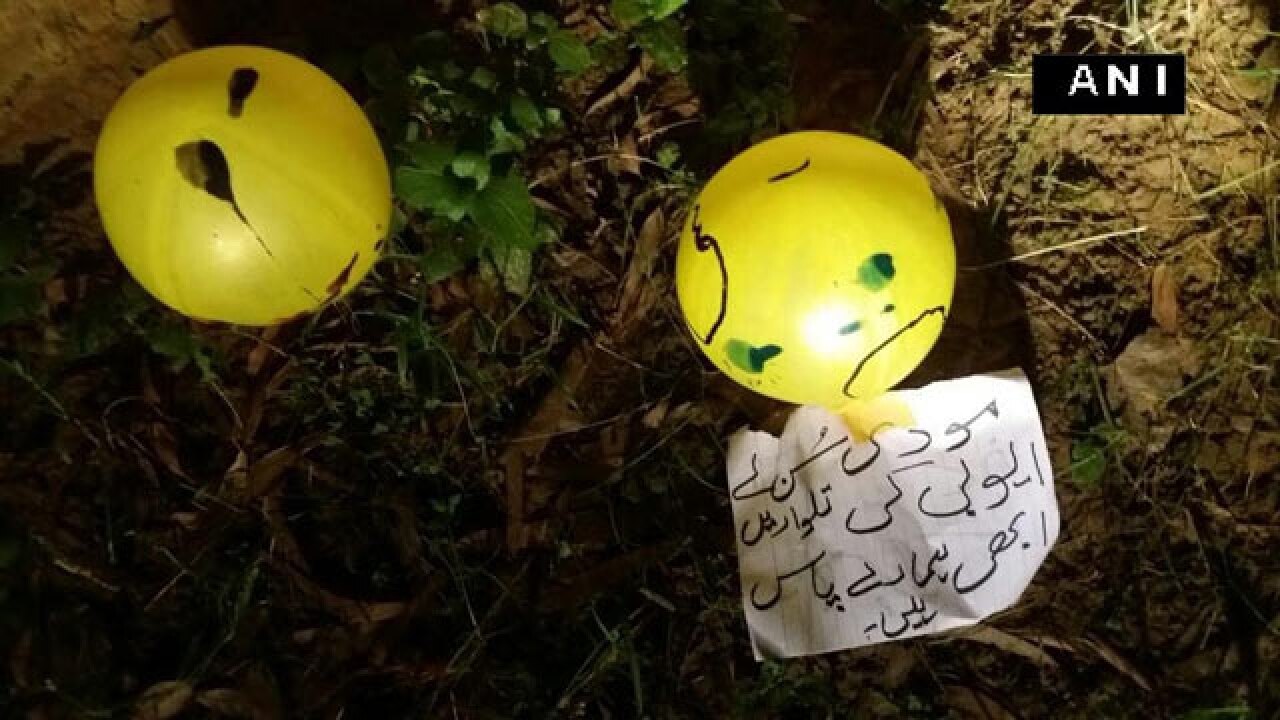 ANI
مودی سُن لے
ایوبی کی تلواریں
ابھی ہمارے پاس
ہیں۔